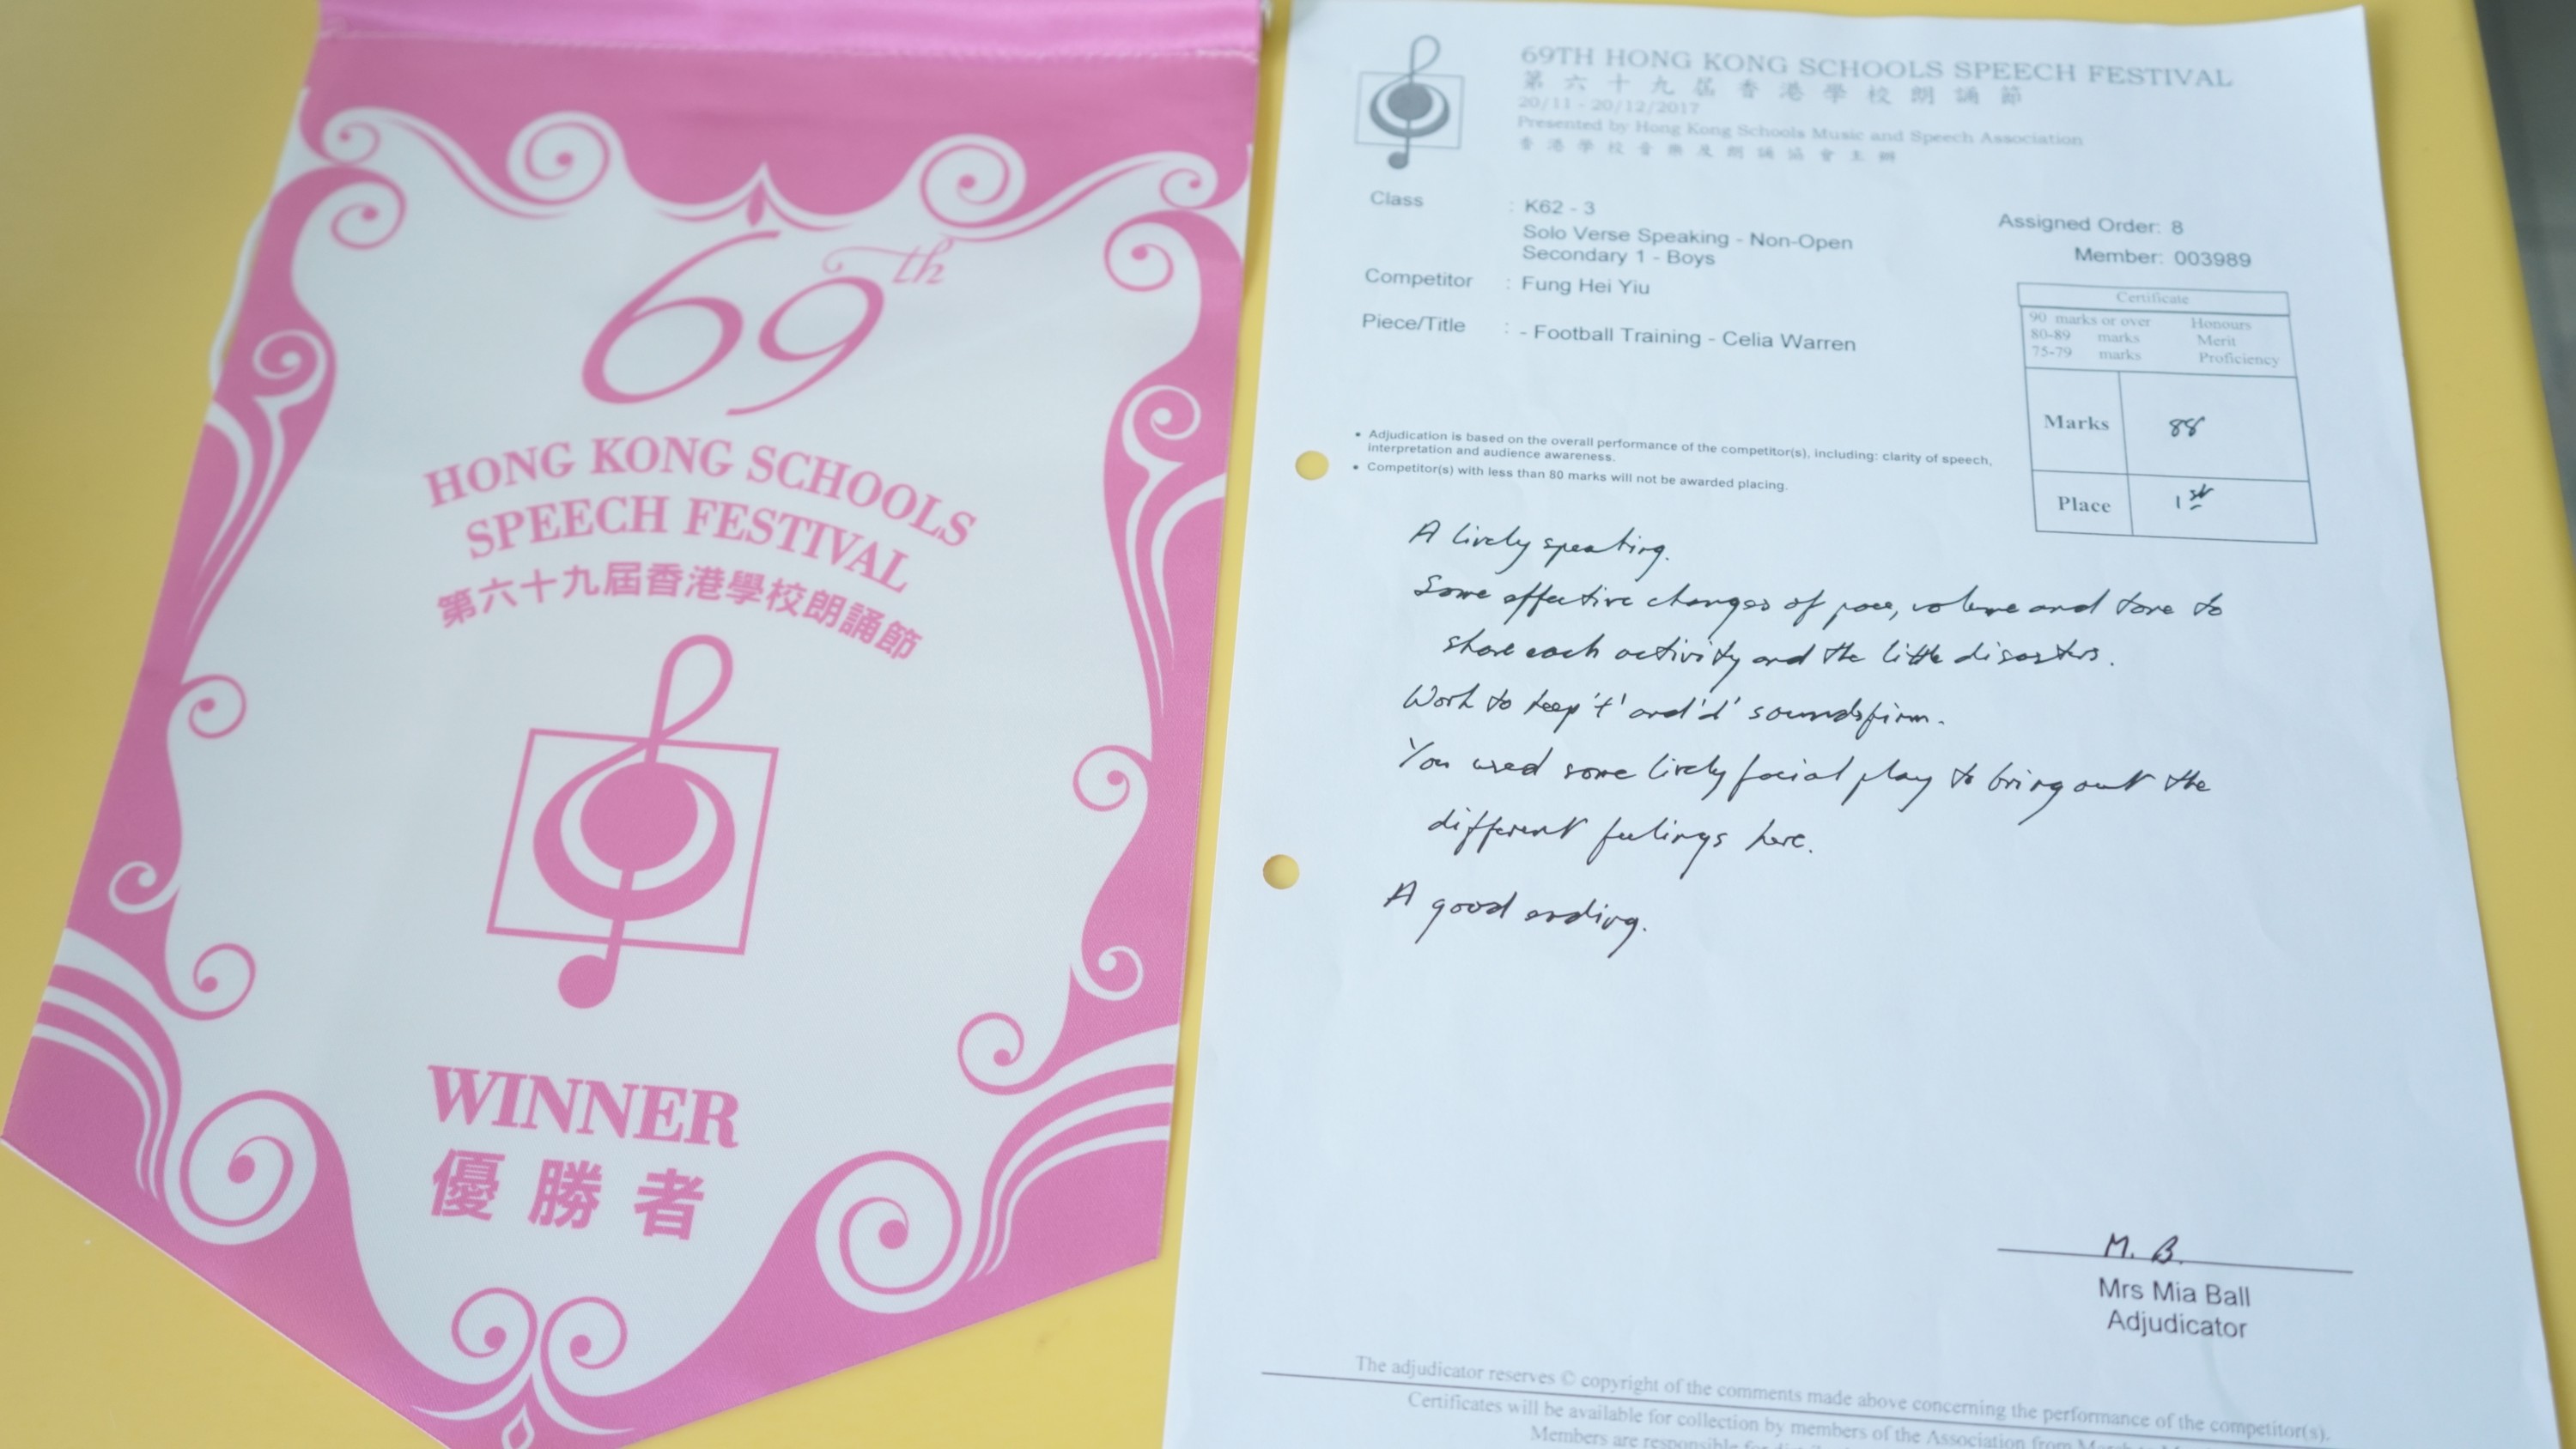 69th
HONG KONG SCHOOLS
SPEECH FESTIVAL
第六十九屆香港學校朗誦節
WINNER
優勝者
69TH HONG KONG SCHOOLS SPEECH FESTIVAL
第六十九屆香港學校朗誦節
20/11 - 20/12/2017
Presented by Hong Kong Schools Music and Speech Association
香港學校音樂及朗誦協會主辦
Class : K62 - 3
Solo Verse Speaking - Non-Open
Secondary 1 - Boys
Competitor : Fung Hei Yiu
Piece/Title : - Football Training - Celia Warren
Assigned Order: 8
Member: 003989
Certificate
90 marks or over Honours
80-89 marks Merit
75-79 marks Proficiency
Marks 88
Place 1st
• Adjudication is based on the overall performance of the competitor(s), including: clarity of speech,
interpretation and audience awareness.
• Competitor(s) with less than 80 marks will not be awarded placing.
A lively speaking.
Some effective changes of pace, volume and tone to
share each activity and the little disasters.
Work to keep 't' and 'd' sounds firm.
You used some lively facial play to bring out the
different feelings here.
A good ending.
M. B.
Mrs Mia Ball
Adjudicator
The adjudicator reserves © copyright of the comments made above concerning the performance of the competitor(s).
Certificates will be available for collection by members of the Association from
Members are responsible for